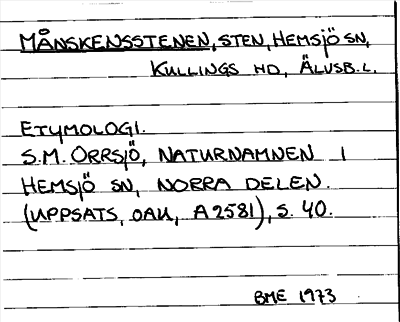 MÅNSKENSSTENEN, STEN, HEMSJÖ SN,
KULLINGS HD, ÄLVSB.L.
ETYMOLOGI.
S.M. ORRSJÖ, NATURNAMNEN I
HEMSJÖ SN, NORRA DELEN.
(UPPSATS, OAU, A2581), S. 40.
BME 1973